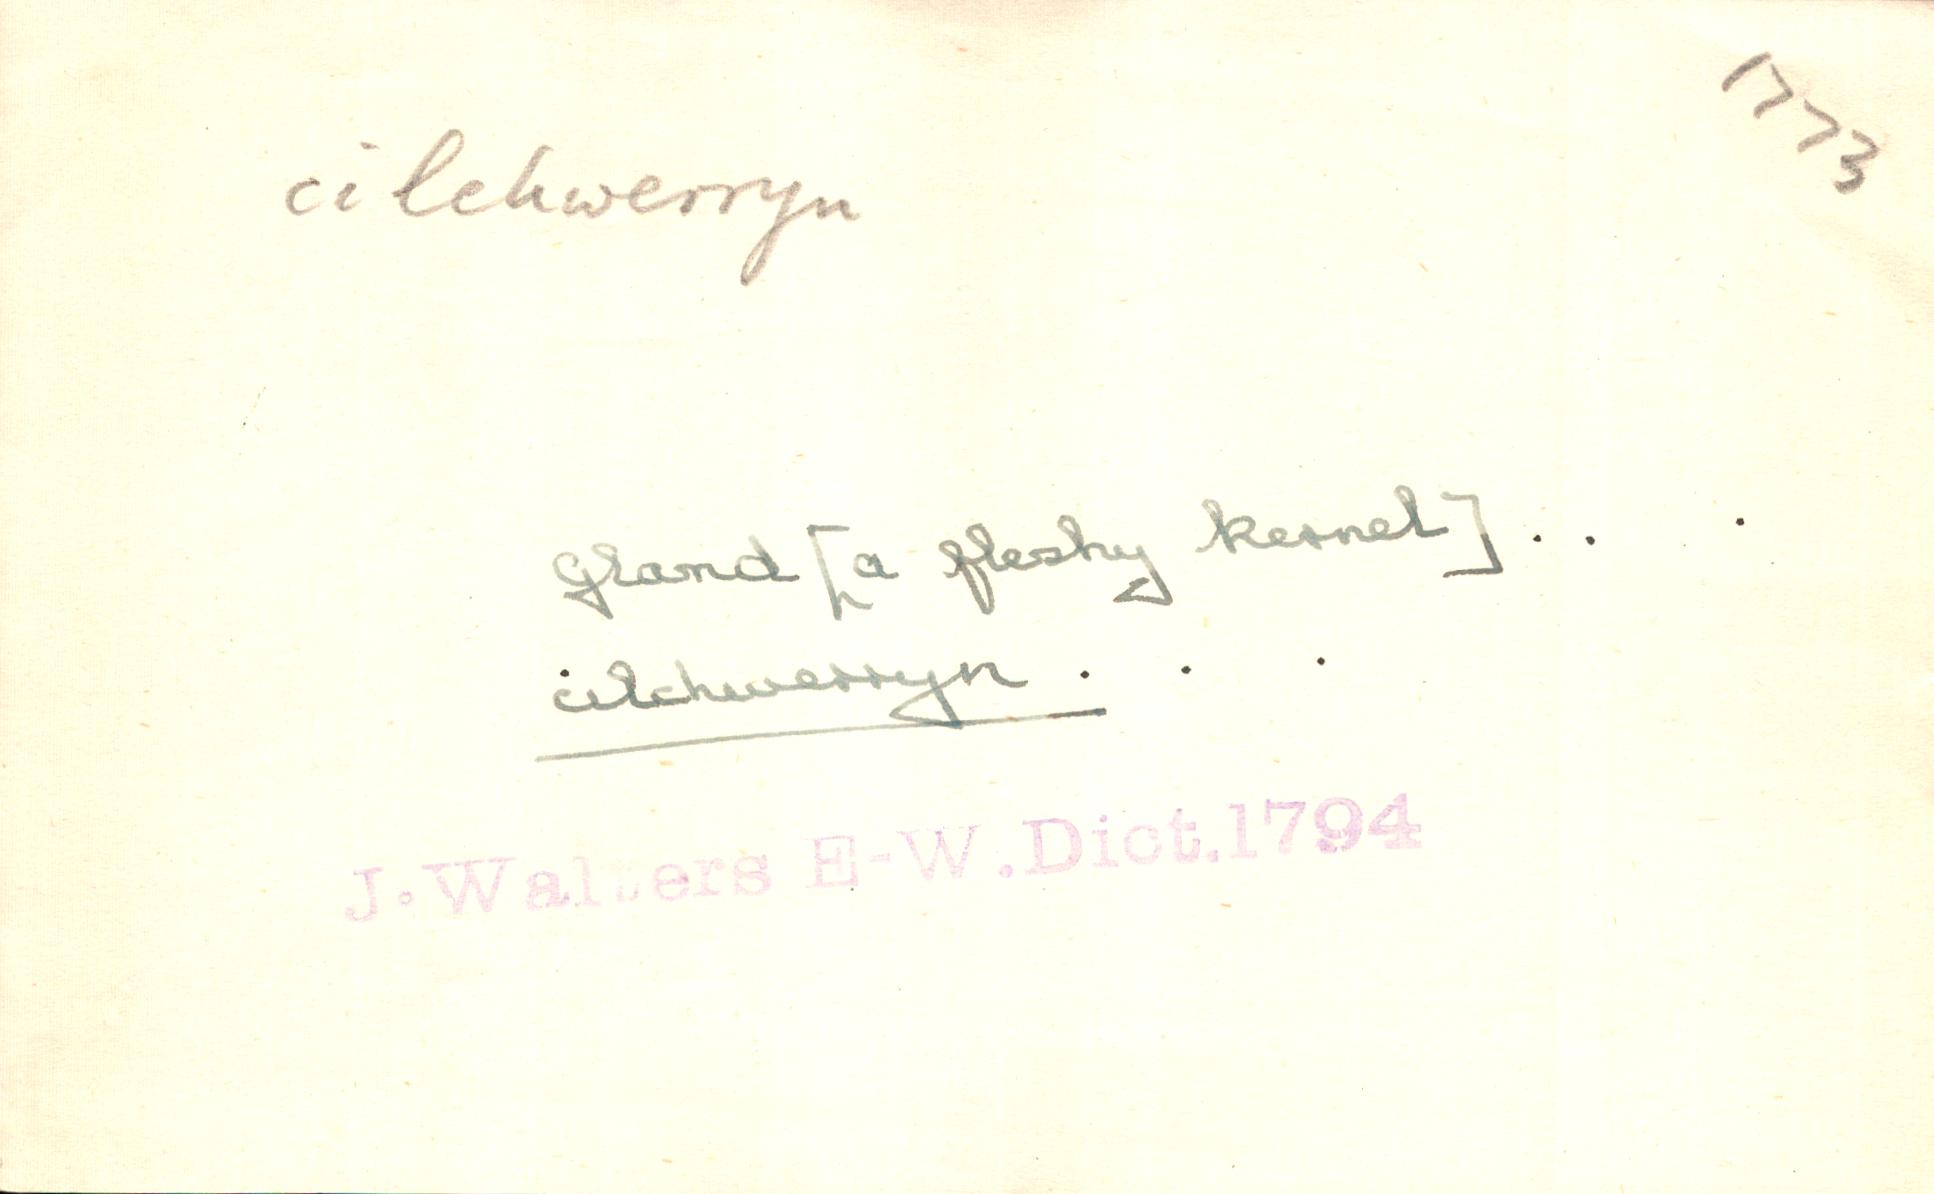 1773
cilchwerryn
Gland [a fleshy kernel] . . .
cilchwerryn . . .
J. Walters E-W. Dict. 1794